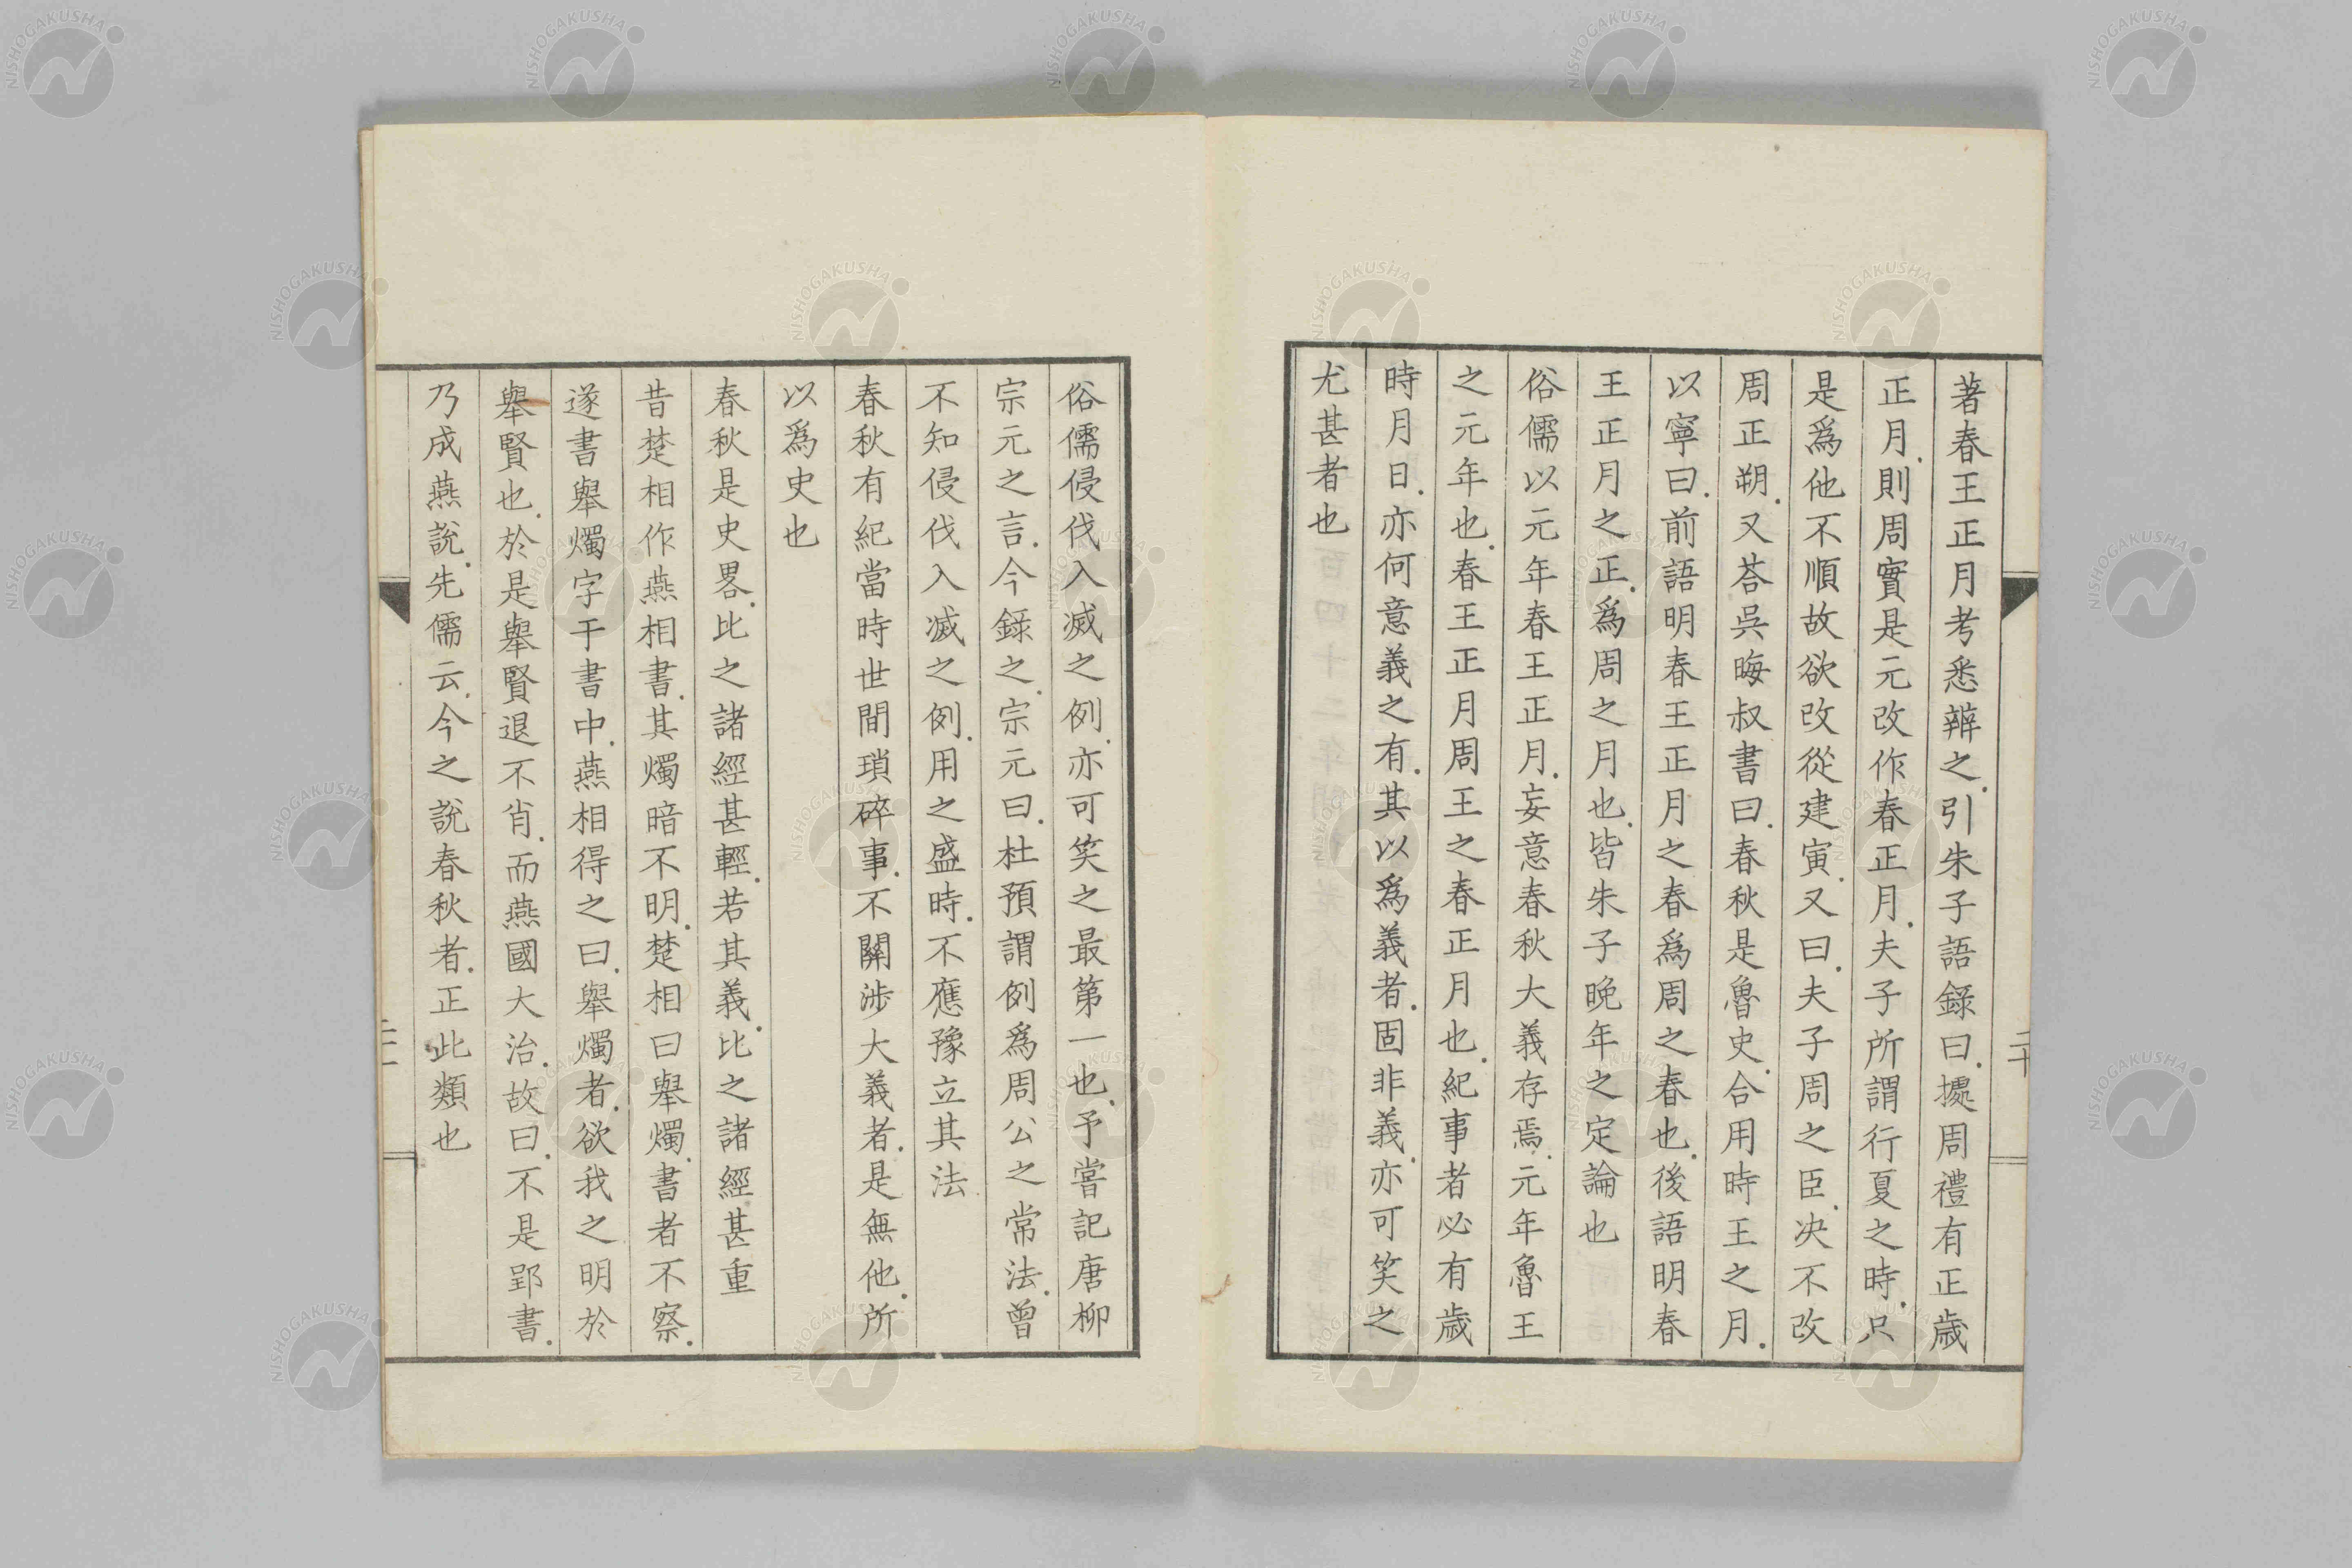 著春王正月考悉辨之.引朱子語錄曰.攄周禮有正歳
正月.則周實是元改作春正月.夫子所謂行夏之時.只
是爲他不順故欲改從建寅.又曰.夫子周之臣.决不改
周正朔.又荅呉晦叔書曰.春秋是魯史.合用時王之月.
以寧曰.前語明春王正月之春爲周之春也.後語明春
王正月之正.爲周之月也.皆朱子晩年之定論也
俗儒以元年春王正月.妄意春秋大義存焉.元年魯王
之元年也.春王正月周王之春正月也.紀事者必有歳
時月日.亦何意義之有.其以爲義者.固非義.亦可笑之
尤甚者也
二十
俗儒侵伐入滅之例.亦可笑之最第一也.予嘗記唐柳
宗元之言.今錄之.宗元曰.杜預謂例爲周公之常法.曽
不知侵伐入滅之例.用之盛時.不應豫立其法
春秋有紀當時世間瑣碎事.不關渉大義者.是無他.所
以爲史也
春秋是史畧.比之諸經甚輕.若其義.比之諸經甚重
昔楚相作燕相書.其燭暗不明.楚相曰舉燭.書者不察.
遂書舉燭字于書中.燕相得之曰.舉燭者.欲我之明於
舉賢也.於是舉賢退不肖.而燕國大治.故曰.不是郢書.
乃成燕說.先儒云.今之說春秋者.正此類也
NISHOGAKUSHA